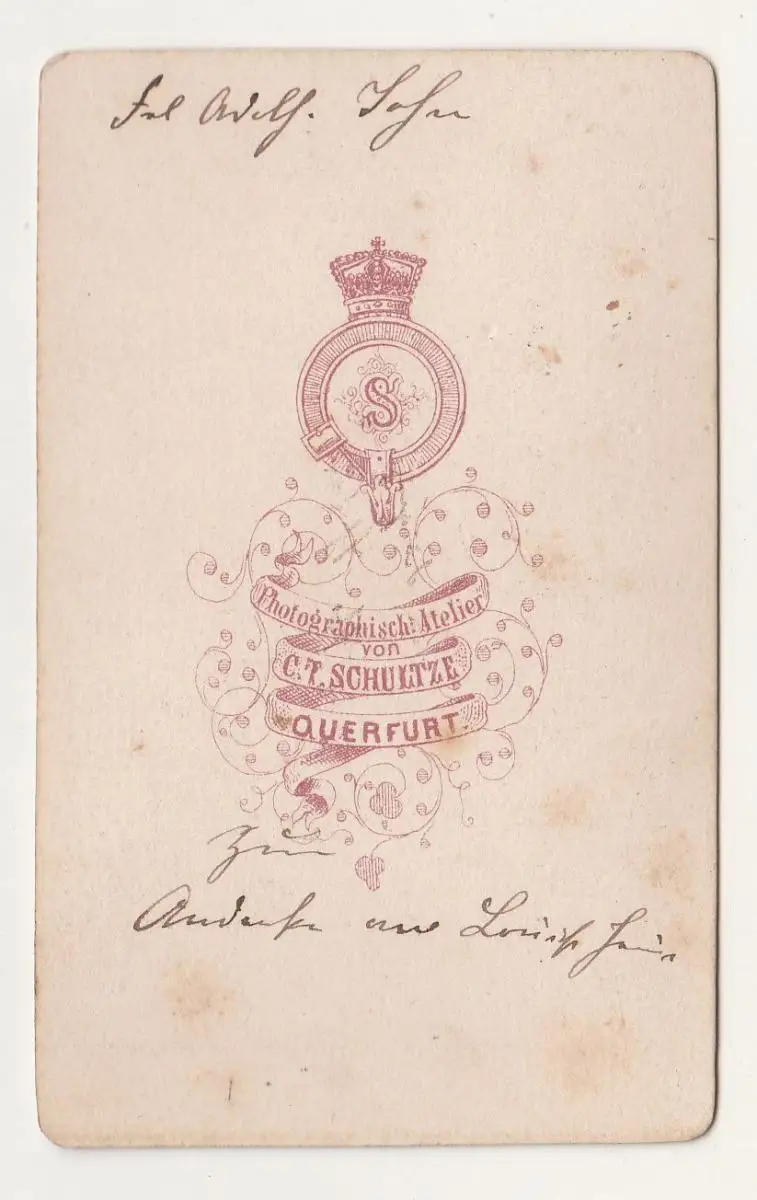 Adolf. John
S
Photographisch: Atelier
von
C. T. SCHULTZE
QUERFURT.
Zum
Andenken an Louise